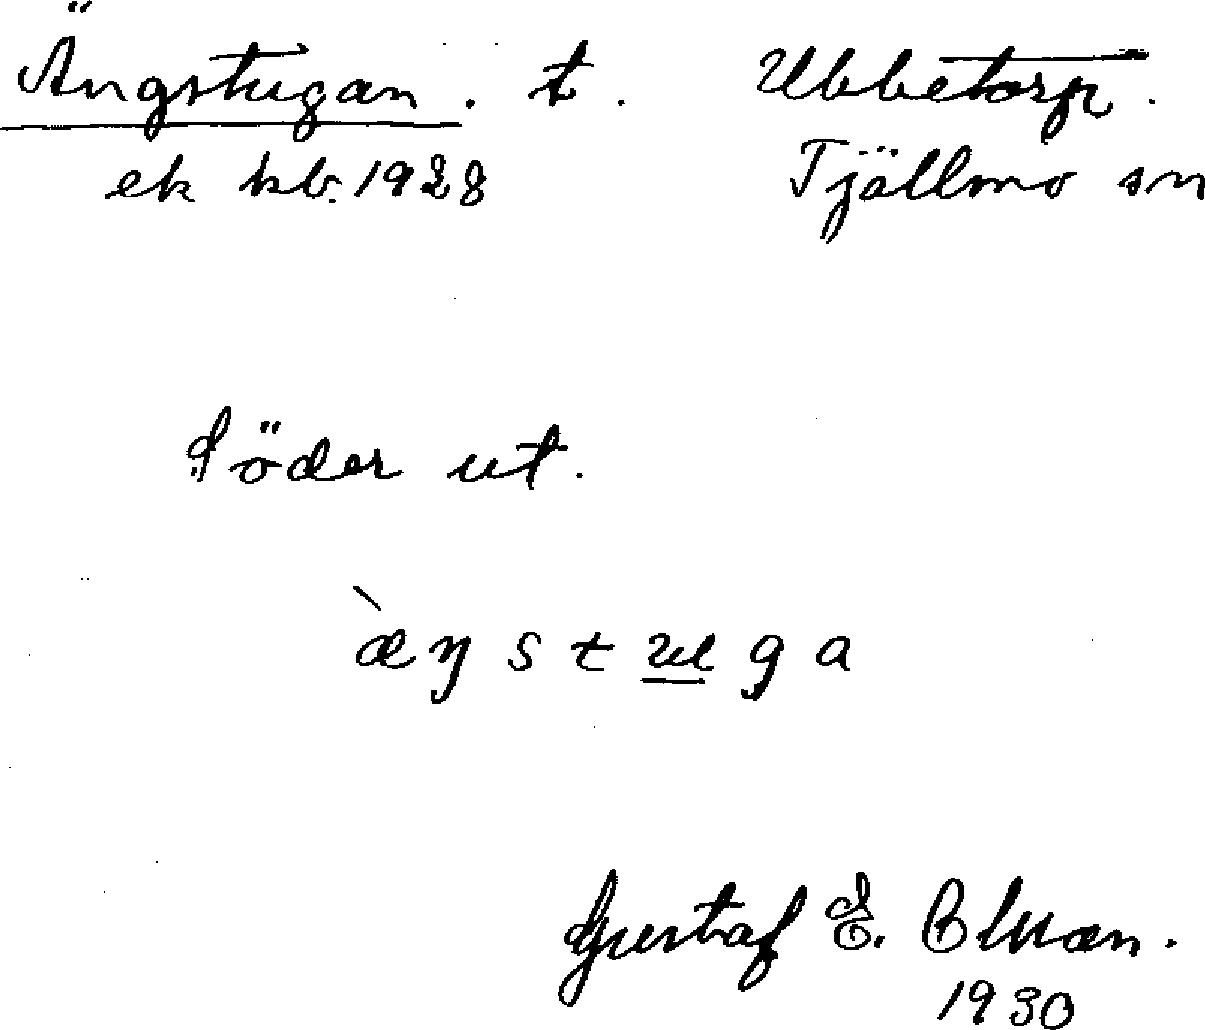 Ängstugan. t. Ubbetorp.
ek kb. 1928 Tjällmo sn
Söder ut.
æ̀ŋstuga
Gustaf E.
1930